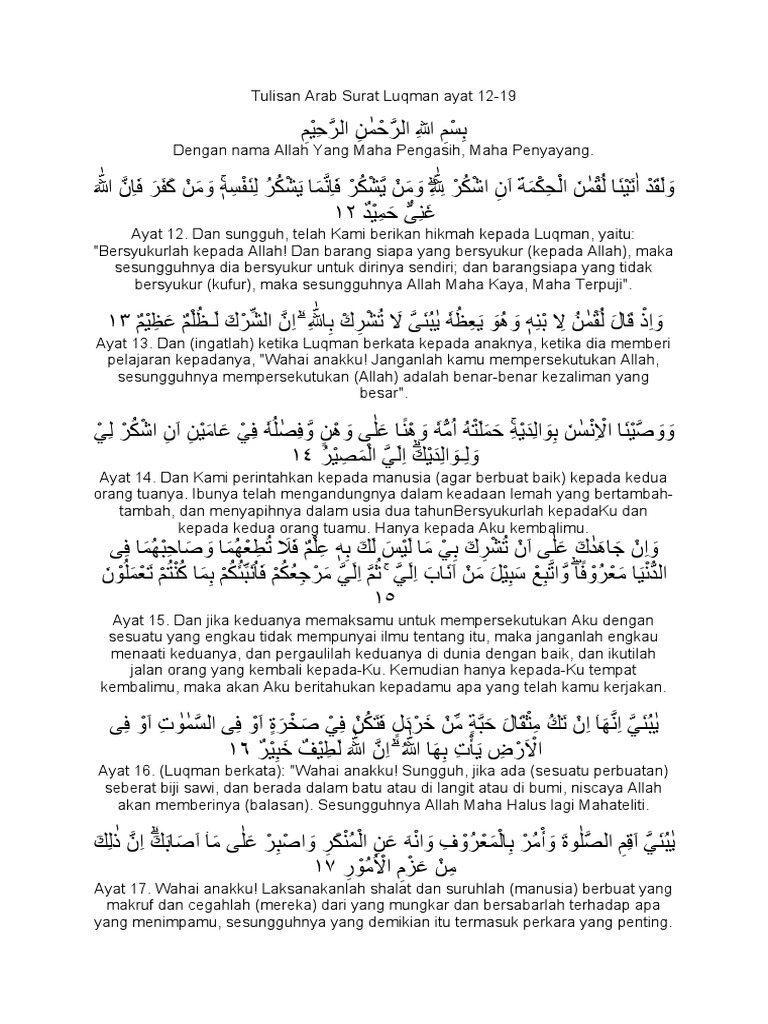 Tulisan Arab Surat Luqman ayat 12-19
بِسْمِ اللهِ الرَّحْمٰنِ الرَّحِيْمِ
Dengan nama Allah Yang Maha Pengasih, Maha Penyayang.
وَلَقَدْ اٰتَيْنَا لُقْمٰنَ الْحِكْمَةَ اَنِ اشْكُرْ لِلّٰهِ ۗوَمَنْ يَّشْكُرْ فَاِنَّمَا يَشْكُرُ لِنَفْسِهٖۚ وَمَنْ كَفَرَ فَاِنَّ اللّٰهَ
غَنِىٌّ حَمِيْدٌ ١٢
Ayat 12. Dan sungguh, telah Kami berikan hikmah kepada Luqman, yaitu:
"Bersyukurlah kepada Allah! Dan barang siapa yang bersyukur (kepada Allah), maka
sesungguhnya dia bersyukur untuk dirinya sendiri; dan barangsiapa yang tidak
bersyukur (kufur), maka sesungguhnya Allah Maha Kaya, Maha Terpuji".
وَاِذْ قَالَ لُقْمٰنُ لِا بْنِهٖ وَهُوَ يَعِظُهٗ يٰبُنَىَّ لَا تُشْرِكْ بِاللّٰهِ ۗاِنَّ الشِّرْكَ لَـظُلْمٌ عَظِيْمٌ ١٣
Ayat 13. Dan (ingatlah) ketika Luqman berkata kepada anaknya, ketika dia memberi
pelajaran kepadanya, "Wahai anakku! Janganlah kamu mempersekutukan Allah,
sesungguhnya mempersekutukan (Allah) adalah benar-benar kezaliman yang
besar".
وَوَصَّيْنَا الْاِنْسٰنَ بِوَالِدَيْهِۚ حَمَلَتْهُ اُمُّهٗ وَهْنًا عَلٰى وَهْنٍ وَّفِصٰلُهٗ فِيْ عَامَيْنِ اَنِ اشْكُرْ لِيْ
وَلِـوَالِدَيْكَۗ اِلَيَّ الْمَصِيْرُ ١٤
Ayat 14. Dan Kami perintahkan kepada manusia (agar berbuat baik) kepada kedua
orang tuanya. Ibunya telah mengandungnya dalam keadaan lemah yang bertambah-
tambah, dan menyapihnya dalam usia dua tahunBersyukurlah kepadaKu dan
kepada kedua orang tuamu. Hanya kepada Aku kembalimu.
وَاِنْ جَاهَدٰكَ عَلٰٓى اَنْ تُشْرِكَ بِيْ مَا لَيْسَ لَكَ بِهٖ عِلْمٌ فَلَا تُطِعْهُمَا وَصَاحِبْهُمَا فِى
الدُّنْيَا مَعْرُوْفًاۖ وَّاتَّبِعْ سَبِيْلَ مَنْ اَنَابَ اِلَيَّ ۚثُمَّ اِلَيَّ مَرْجِعُكُمْ فَاُنَبِّئُكُمْ بِمَا كُنْتُمْ تَعْمَلُوْنَ
١٥
Ayat 15. Dan jika keduanya memaksamu untuk mempersekutukan Aku dengan
sesuatu yang engkau tidak mempunyai ilmu tentang itu, maka janganlah engkau
menaati keduanya, dan pergaulilah keduanya di dunia dengan baik, dan ikutilah
jalan orang yang kembali kepada-Ku. Kemudian hanya kepada-Ku tempat
kembalimu, maka akan Aku beritahukan kepadamu apa yang telah kamu kerjakan.
يٰبُنَيَّ اِنَّهَاۤ اِنْ تَكُ مِثْقَالَ حَبَّةٍ مِّنْ خَرْدَلٍ فَتَكُنْ فِيْ صَخْرَةٍ اَوْ فِى السَّمٰوٰتِ اَوْ فِى
الْاَرْضِ يَأْتِ بِهَا اللّٰهُ ۗاِنَّ اللّٰهَ لَطِيْفٌ خَبِيْرٌ ١٦
Ayat 16. (Luqman berkata): "Wahai anakku! Sungguh, jika ada (sesuatu perbuatan)
seberat biji sawi, dan berada dalam batu atau di langit atau di bumi, niscaya Allah
akan memberinya (balasan). Sesungguhnya Allah Maha Halus lagi Mahateliti.
يٰبُنَيَّ اَقِمِ الصَّلٰوةَ وَأْمُرْ بِالْمَعْرُوْفِ وَانْهَ عَنِ الْمُنْكَرِ وَاصْبِرْ عَلٰى مَاۤ اَصَابَكَۗ اِنَّ ذٰلِكَ
مِنْ عَزْمِ الْاُمُوْرِ ١٧
Ayat 17. Wahai anakku! Laksanakanlah shalat dan suruhlah (manusia) berbuat yang
makruf dan cegahlah (mereka) dari yang mungkar dan bersabarlah terhadap apa
yang menimpamu, sesungguhnya yang demikian itu termasuk perkara yang penting.